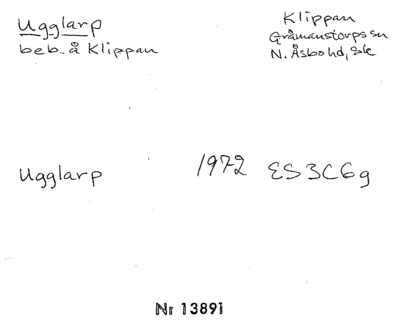 Ugglarp
beb. å Klippan
Klippan
Gråmanstorps sn
N. Åsbo hd, Sk
Ugglarp 1972 ES3C6g
Nr 13891